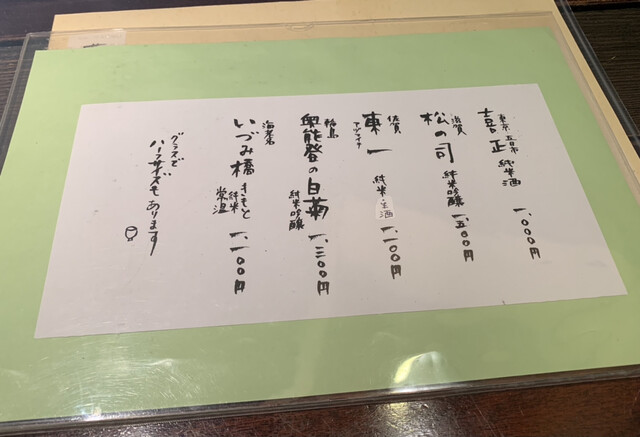 東京 五日市
喜正 純米酒 一、〇〇〇円
滋賀
松の司 純米吟醸 一、五〇〇円
佐賀
東一 純米・生酒 一、一〇〇円
輪島
奥能登の白菊 純米吟醸 一、三〇〇円
海老名
いづみ橋 きもと 純米 常温 一、一〇〇円
グラスで
ハーフサイズもあります